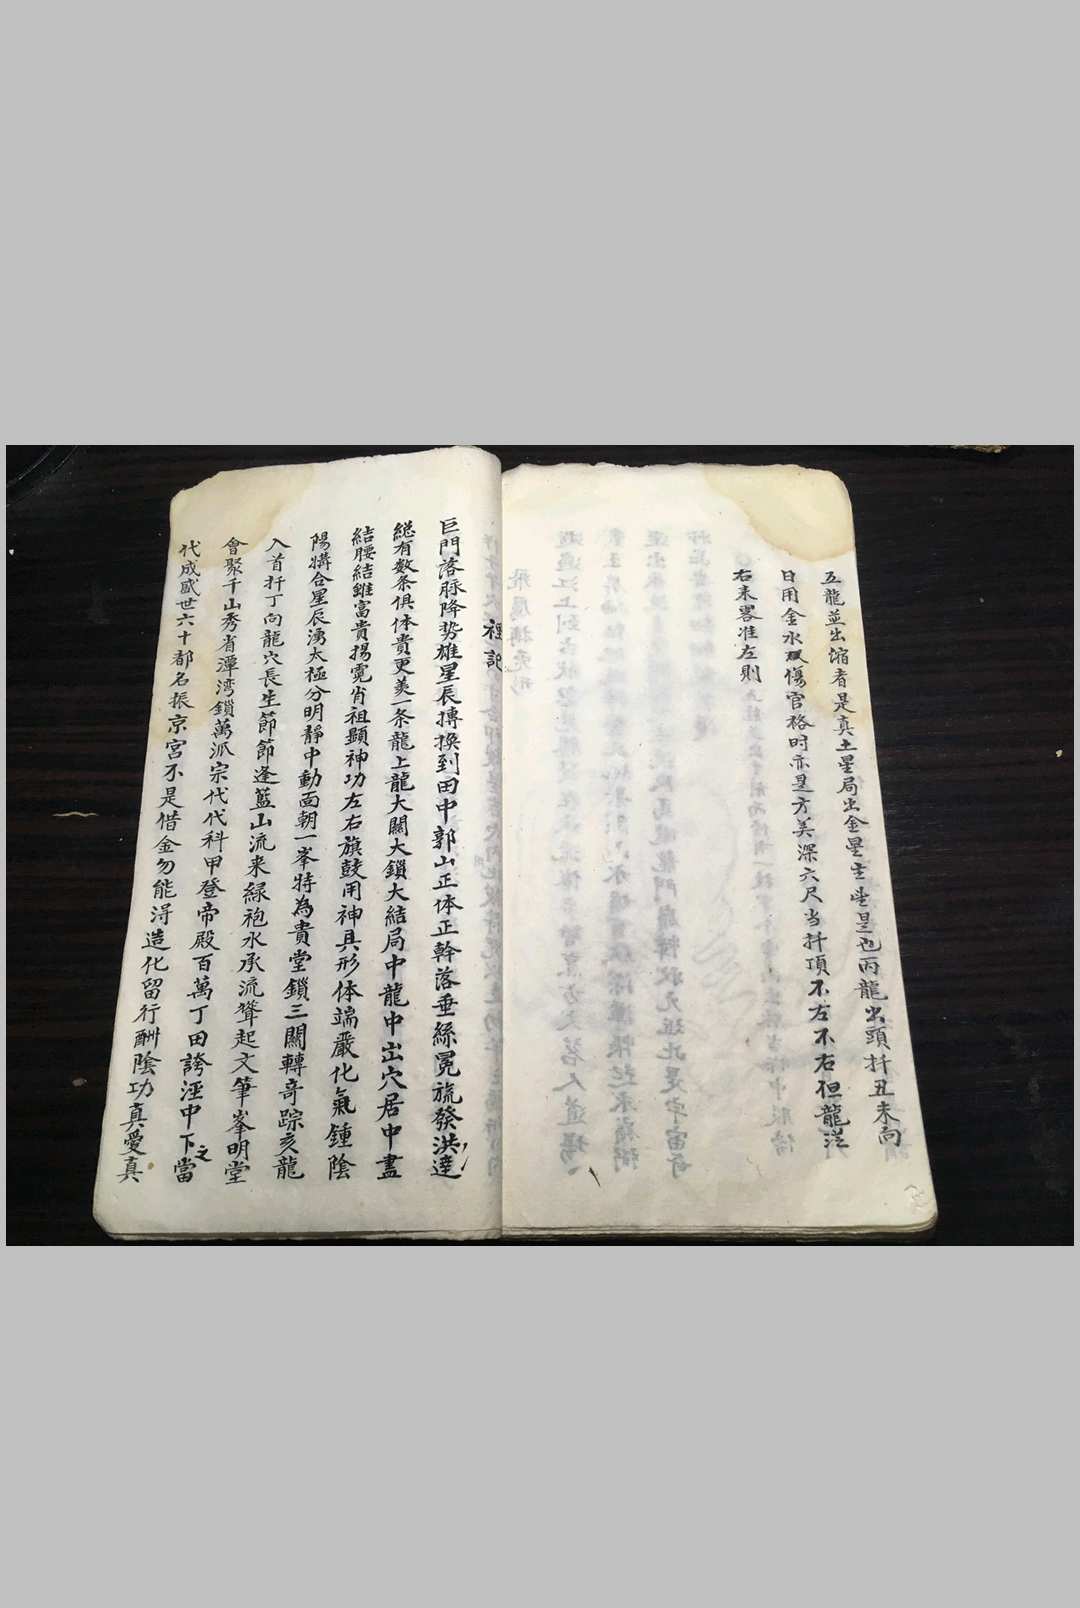 五龍並出縮者是真土星局出金星主坐是也丙龍出頭扦丑未向
日用金水双傷官格时亦是方美深六尺当扦頂不左不右但龍從
右来畧准左則
禋説
巨門落脉降势雄星辰摶換到田中郭山正体正幹落垂絲冕旒發洪達
総有数条俱体貴更羡一条龍上龍大關大鎖大結局中龍中出穴居中盡
結腰結雖富貴揚霓肖祖顯神功左右旗鼓用神具形体端嚴化氣鍾陰
陽構合星辰湧太極分明靜中動面朝一峯特為貴堂鎖三關轉奇踪亥龍
入首扦丁向龍穴長生節節逢籃山流来緑袍水承流聳起文筆峯明堂
會聚千山秀省潭湾鎖萬派宗代代科甲登帝殿百萬丁田誇涇中下之當
代成盛世六十都名振京宮不是借金勿能淂造化留行酬陰功真愛真